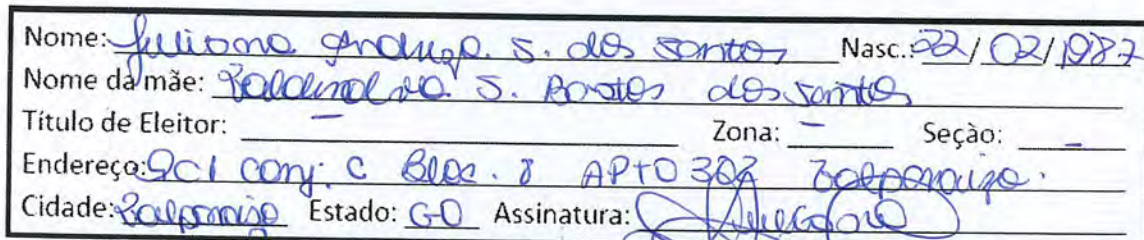 Nome: Juliana Andreza. S. dos Santos Nasc.: 22/02/1987
Nome da mãe: S. Bastos dos Santos
Título de Eleitor: – Zona: – Seção: –
Endereço: QC1 conj. C Bloc. 8 APTO 303 Valparaizo.
Cidade: Valparaizo Estado: GO Assinatura: